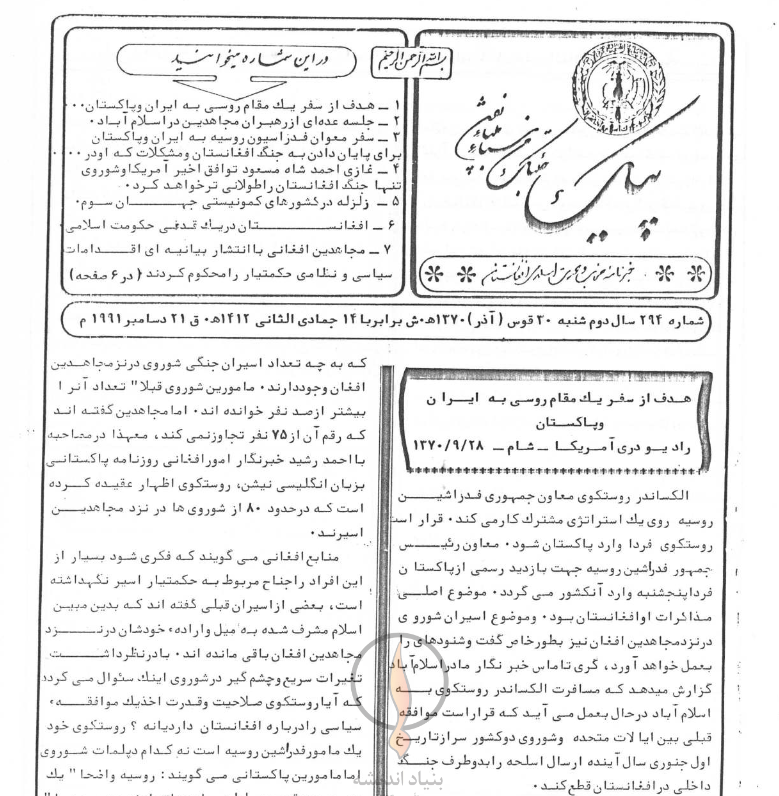 بسم الله الرحمن الرحیم
پیک
خبرنامه
در این شماره میخوانید
۱ ــ هدف از سفر یك مقام روسی به ایران وپاکستان...
۲ ــ جلسه عده‌ای از رهبران مجاهدین در اسلام آباد.
۳ ــ سفر معوان فدراسیون روسیه به ایران وپاکستان
برای پایان دادن به جنگ افغانستان ومشکلات که اودر ....
۴ ــ غازی احمد شاه مسعود توافق اخیر آمریکاوشوروی
تنها جنگ افغانستان راطولانی ترخواهد کرد.
۵ ــ زلزله درکشورهای کمونیستی جهـــان سوم.
۶ ــ افغانســـــتان دریك قدمی حکومت اسلامی.
۷ ــ مجاهدین افغانی باانتشار بیانیه ای اقـدامات
سیاسی و نظامی حکمتیار رامحکوم کردند (در۶ صفحه)
شماره ۲۹۴ سال دوم شنبه ۳۰ قوس (آذر) ۱۳۷۰ه‍.ش برابربا ۱۴ جمادی الثانی ۱۴۱۲ه‍.ق ۲۱ دسامبر ۱۹۹۱ م
هدف از سفر یك مقام روسی به ایـران
وپاکستان
رادیو دری آمریکا ــ شام ــ ۱۳۷۰/۹/۲۸
الکساندر روستکوی معاون جمهوری فدراشیـــن
روسیه روی یك استراتژی مشترك کارمی کند. قرار است
روستکوی فردا وارد پاکستان شود. معاون رئیـــس
جمهور فدراشین روسیه جهت بازدید رسمی ازپاکستا ن
فرداپنجشنبه وارد آنکشور می گردد. موضوع اصلــی
مذاکرات اوافغانستان بود. وموضوع اسیران شوروی
درنزدمجاهدین افغان نیز بطورخاص گفت وشنودهای را
بعمل خواهد آورد، گری تاماس خبر نگار مادراسلام آباد
گزارش میدهد که مسافرت الکساندر روستکوی بـــه
اسلام آباد درحال بعمل می آید که قراراست موافقه
قبلی بین ایا لات متحده وشوروی دوکشور سرازتاریـخ
اول جنوری سال آینده ارسال اسلحه رابدوطرف جنـگ
داخلی درافغانستان قطع کند.
که به چه تعداد اسیران جنگی شوروی درنزدمجاهـدین
افغان وجوددارند. مامورین شوروی قبلا" تعداد آنرا
بیشتر ازصد نفر خوانده اند. امامجاهدین گفته انـد
که رقم آن از ۷۵ نفر تجاوزنمی کند، معهذا درمصاحبه
بااحمد رشید خبرنگار امورافغانی روزنامه پاکستانـی
بزبان انگلیسی نیشن، روستکوی اظهار عقیده کــرده
است که درحدود ۸۰ از شوروی ها در نزد مجاهدیــن
اسیرند.
منابع افغانی می گویند که فکری شود بسیار از
این افراد راجناح مربوط به حکمتیار اسیر نگهداشته
است، بعضی ازاسیران قبلی گفته اند که بدین مبین
اسلام مشرف شده به میل واراده خودشان درنــــزد
مجاهدین افغان باقی مانده اند. بادرنظرداشـــت
تغیرات سریع وچشم گیر درشوروی اینك سئوال می گردد
که آیاروستکوی صلاحیت وقدرت اخذیك موافقـــه
سیاسی رادرباره افغانستان داردیانه ؟ روستکوی خود
یك مامورفدراشین روسیه است نه کدام دپلمات شــوروی
امامامورین پاکستانی می گویند: روسیه واضحا" یك
بنیاد اندیشه